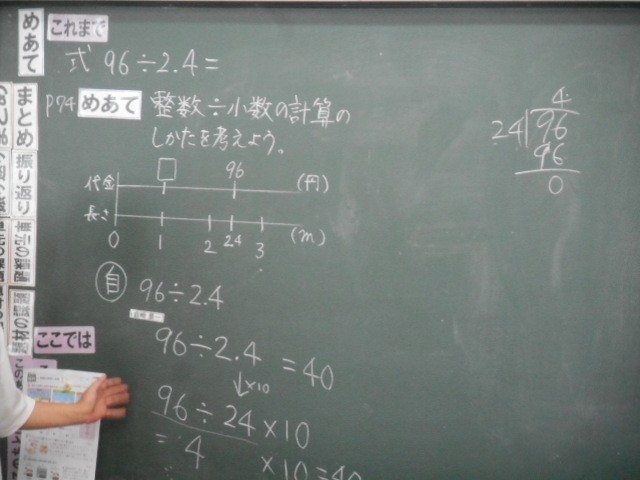 めあて
これまで
式 96÷2.4=
P74 めあて 整数÷小数の計算の
しかたを考えよう。
まとめ
振り返り
代金 □ 96 (円)
長さ 0 1 2 2.4 3 (m)
自 96÷2.4
ここでは
96÷2.4 =40
↓×10
96÷24×10
=4 ×10=40
4
24)96
96
0